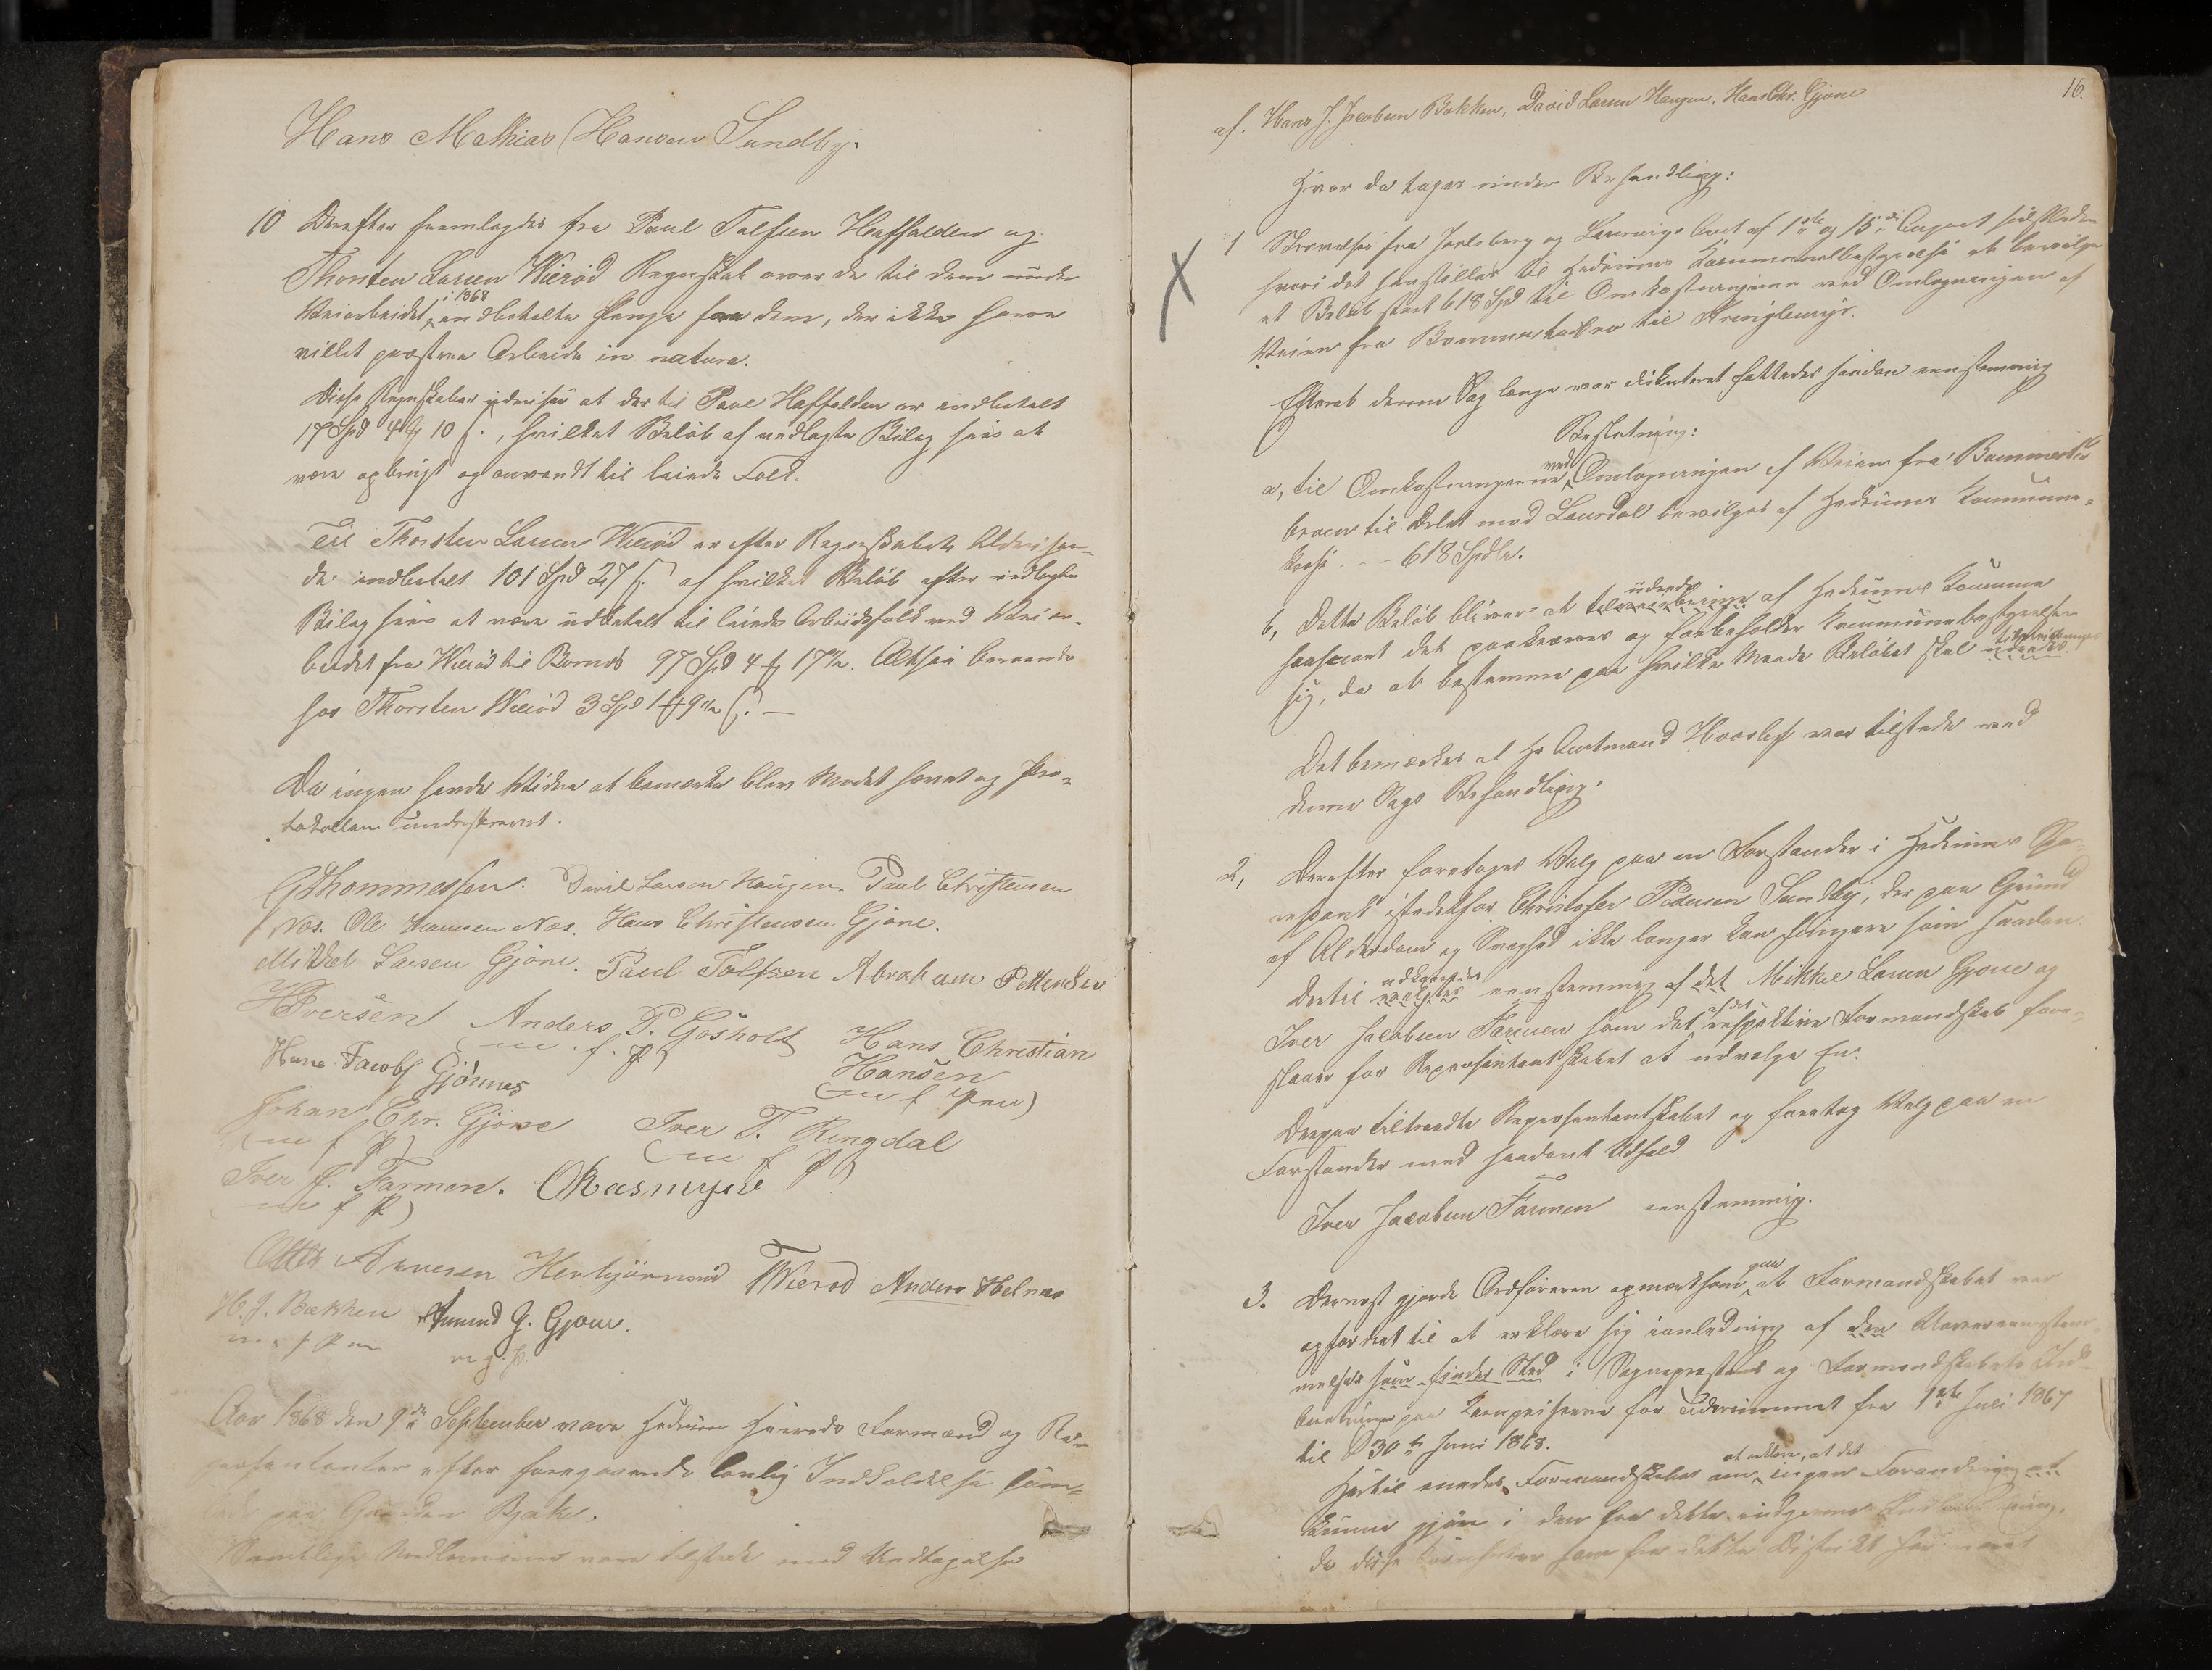 Hans Mathias Hansen Sundby.
10 Derefter fremlagdes fra Paul Tolfsen Haffalden og
Thorsten Larsen Wierød Regnskab over de til dem under
Veiarbeidet i 1868 indbetalte Penge fra dem, der ikke have
villet præstere Arbeide in natura.
Disse Regnskaber udviser at der til Paul Haffalden er indbetalt
17 Spd 4 10 ß., hvilket Beløb af vedlagte Bilag sees at
være opbrugt og anvendt til leiede Folk.
Til Thorsten Larsen Wierød er efter Regnskabets Udvisen-
de indbetalt 101 Spd 27 ß. af hvilket Beløb efter vedlagte
Bilag sees at være udbetalt til leiede Arbeidsfolk ved Veiar-
beidet fra Wierød til 97 Spd 4 17½. Altsaa beroende
hos Thorsten Wierød 3 Spd 1 9½ ß. —
Da ingen havde Videre at bemærke blev Mødet hævet og Pro-
tokollen underskrevet.
GThommessen. David Larsen Haugen. Paul Christensen
Næs. Ole Hansen Næs. Hans Christensen Gjone.
Mikkel Larsen Gjone. Paul Tolfsen Abraham Pettersen
HIversen Anders P. Gosholt Hans Christian
m. f. P) Hansen
Hans Jacobs Gjønnes m f Pen)
Johan Chr. Gjone Iver T. Ringdal
(m f P) (m f P)
Iver J. Farmen. ORasmusen
(m f P)
Arvesen Herbjørnrød TWierød Anders Helnæs
H. J. Bækken Amund G. Gjone.
m. f. Pen m. g. P.
Aar 1868 den 9de September vare Hedrum Herreds Formænd og Re-
præsentanter efter foregaaende lovlig Indkaldelse sam-
lede paa Gaarden Bjøke.
Samtlige Medlemmer vare tilstede med Undtagelse
16.
af. Hans J. Jacobsen Bakken, David Larsen Haugen, Hans Chr. Gjone
Hvor da toges under Behandling:
1 Skrivelse fra Jarlsberg og Laurvigs Amt af 1ste og 15de August sidstleden
hvori det henstilles til Hedrums Kommunalbestyrelse at bevilge
et Beløb stort 618 Spd til Omkostningerne ved Omlægningen af
Veien fra Bommestadbro til
Efterat denne Sag længe var diskuteret fattedes saadan eenstemmig
Beslutning:
a, til Omkostningerne ved Omlægningen af Veien fra Bommestad-
broen til Delet mod Laurdal bevilges af Hedrums Kommune-
kasse - - 618 Spdlr.
b, Dette Beløb bliver at udrede af Hedrums Kommune
saasnart det paakræves og forbeholder Kommunebestyrelsen
sig, da at bestemme paa hvilken Maade Beløbet skal
Det bemærkes at Hr Amtmand var tilstede ved
denne Sags Behandling.
2, Derefter foretoges Valg paa en Forstander i Hedrums Spa-
istedetfor Christofer Pedersen Sundby, der paa Grund
af Alderdom og Svaghed ikke længer kan fungere som saadan.
Dertil eenstemmig af det Mikkel Larsen Gjone og
Iver Jacobsen Farmen som det af det respektive Formandskab fore-
slaaer for Repræsentantskabet at udvælge En.
Derpaa tiltraadte Repræsentantskabet og foretog Valg paa en
Forstander med saadant Udfald
Iver Jacobsen Farmen eenstemmig.
3. Dernæst gjorde Ordføreren opmærksom paa at Formandskabet var
opfordret til at erklære sig ianledning af den Uoverensstem-
melse som finder Sted i Sognepræstens og Formandskabets
paa for Tidsrummet fra 1ste Juli 1867
til 30te Juni 1868.
Hertil enedes Formandskabet om at erklære, at det ingen Forandring
kunne gjøre i den før dette indgivne
da disse som for dette Distrikt har været